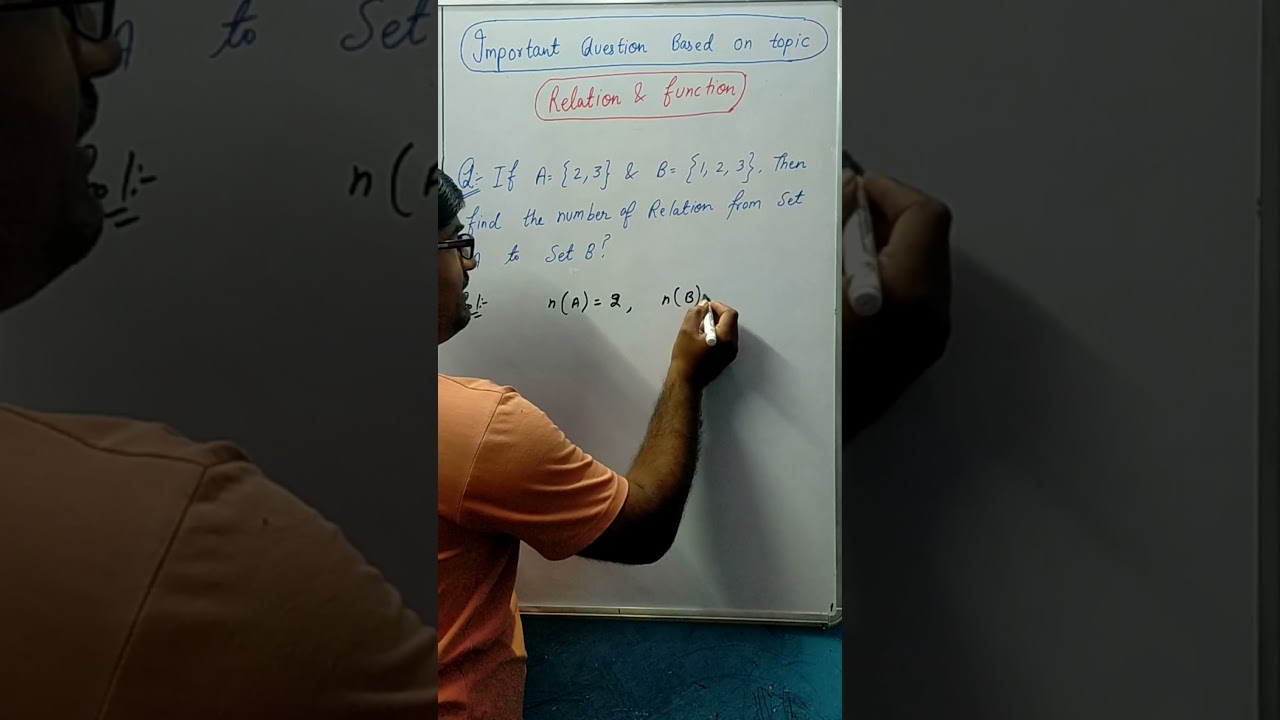 Important Question Based on topic
Relation & function
Q:- If A = {2,3} & B = {1, 2, 3}. Then
find the number of Relation from Set
A to Set B?
Sol:- n(A) = 2, n(B)